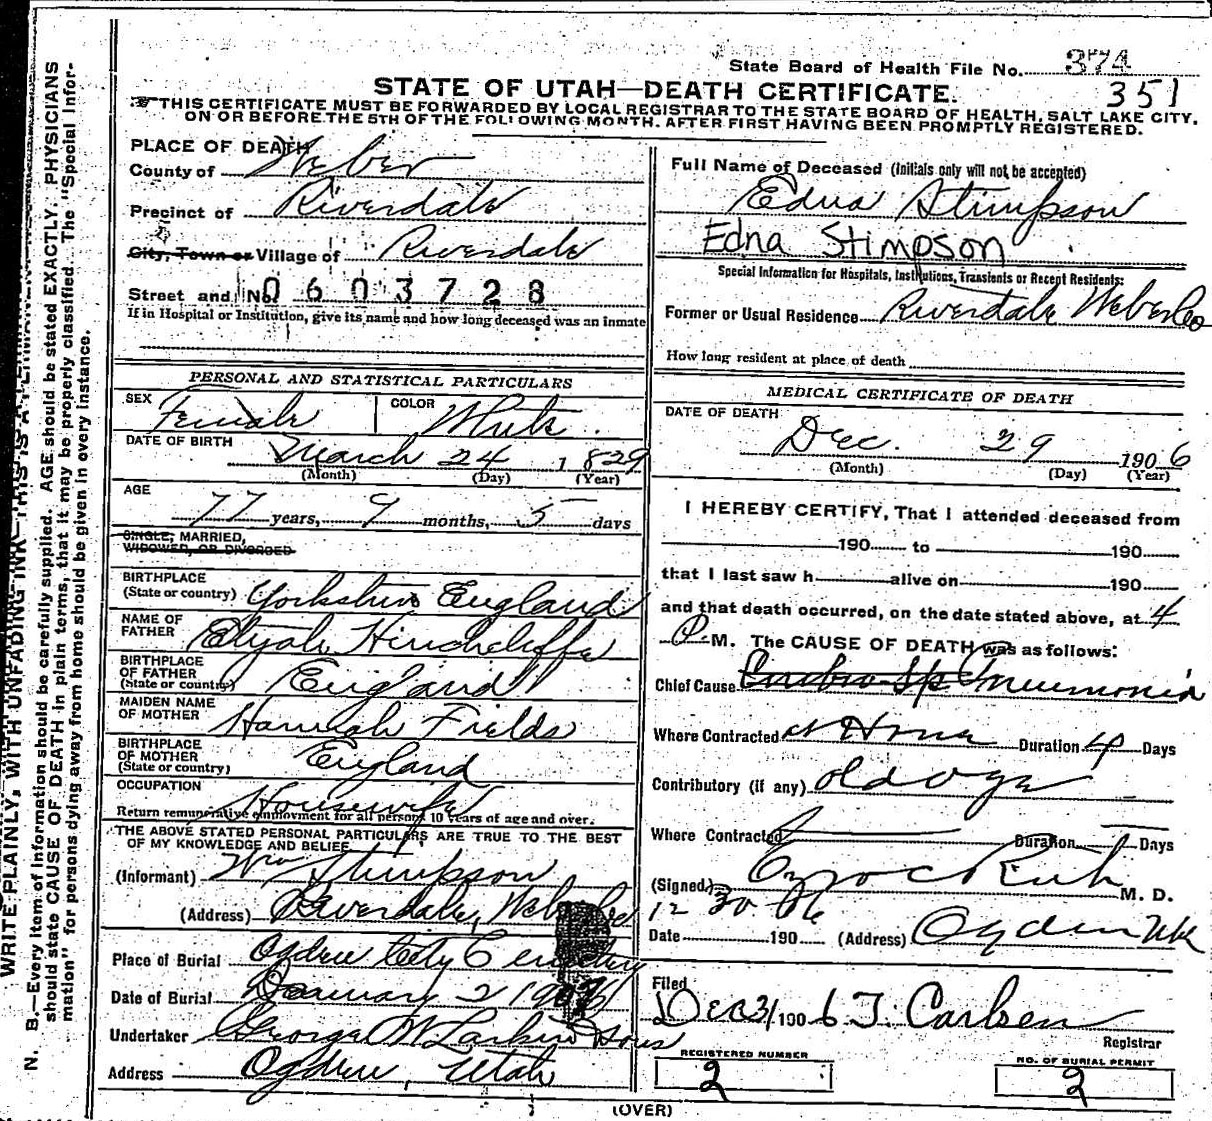 State Board of Health File No. 374
351
STATE OF UTAH—DEATH CERTIFICATE.
THIS CERTIFICATE MUST BE FORWARDED BY LOCAL REGISTRAR TO THE STATE BOARD OF HEALTH, SALT LAKE CITY,
ON OR BEFORE THE 5TH OF THE FOLLOWING MONTH, AFTER FIRST HAVING BEEN PROMPTLY REGISTERED.
PLACE OF DEATH
County of Weber
Precinct of Riverdale
City, Town or Village of Riverdale
Street and No. 0603728
If in Hospital or Institution, give its name and how long deceased was an inmate
Full Name of Deceased (Initials only will not be accepted)
Edna Stimpson
Edna Stimpson
Special Information for Hospitals, Institutions, Transients or Recent Residents:
Former or Usual Residence Riverdale Weber Co
How long resident at place of death
PERSONAL AND STATISTICAL PARTICULARS
SEX Female COLOR White
DATE OF BIRTH March 24 1829
(Month) (Day) (Year)
AGE
77 years, 9 months, 5 days
SINGLE, MARRIED,
WIDOWED, OR DIVORCED
BIRTHPLACE
(State or country) Yorkshire England
NAME OF
FATHER Elijah Hinchcliffe
BIRTHPLACE
OF FATHER
(State or country) England
MAIDEN NAME
OF MOTHER Hannah Fields
BIRTHPLACE
OF MOTHER
(State or country) England
OCCUPATION Housewife
Return remunerative employment for all persons 10 years of age and over.
THE ABOVE STATED PERSONAL PARTICULARS ARE TRUE TO THE BEST
OF MY KNOWLEDGE AND BELIEF
(Informant) Wm Stimpson
(Address) Riverdale, Weber Co
Place of Burial Ogden City Cemetery
Date of Burial January 2 190
Undertaker George W Larkin & Sons
Address Ogden, Utah
MEDICAL CERTIFICATE OF DEATH
DATE OF DEATH
Dec. 29 1906
(Month) (Day) (Year)
I HEREBY CERTIFY, That I attended deceased from
190 to 190
that I last saw h alive on 190
and that death occurred, on the date stated above, at 4
P M. The CAUSE OF DEATH was as follows:
Chief Cause Pneumonia
Where Contracted at Home Duration 4 Days
Contributory (if any) old age
Where Contracted Duration Days
(Signed) M. D.
12 30 06
Date 190 (Address) Ogden Utah
Filed
Dec 31 1906 T. Carlsen
Registrar
REGISTERED NUMBER
2
NO. OF BURIAL PERMIT
2
(OVER)
WRITE PLAINLY, WITH UNFADING INK—THIS IS A PERMANENT
N. B.—Every item of information should be carefully supplied. AGE should be stated EXACTLY. PHYSICIANS
should state CAUSE OF DEATH in plain terms, that it may be properly classified. The "Special Infor-
mation" for persons dying away from home should be given in every instance.